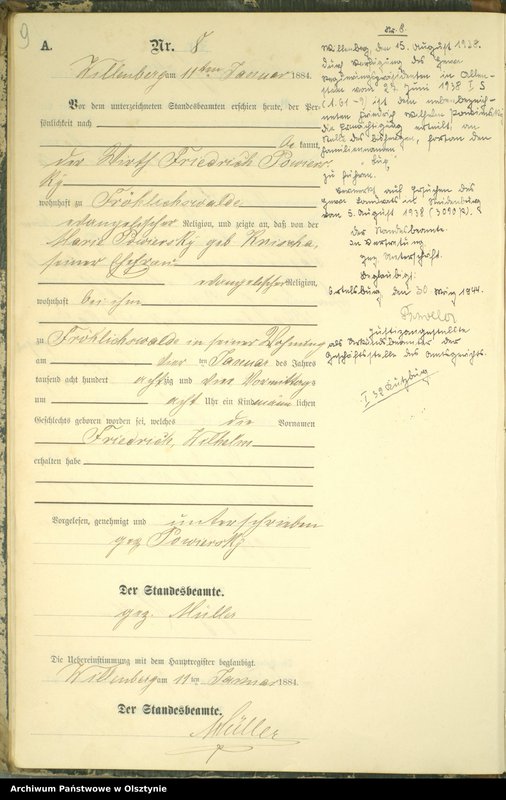 9
A.
Nr. 8
Willenberg am 11ten Januar 1884.
Vor dem unterzeichneten Standesbeamten erschien heute, der Per-
sönlichkeit nach
be kannt,
der Wirth Friedrich Powiers-
ky
wohnhaft zu Fröhlichswalde
evangelischer Religion, und zeigte an, daß von der
Marie Powiersky geb
seiner Ehefrau
evangelischer Religion,
wohnhaft bei ihm
zu Fröhlichswalde in seiner Wohnung
am vier ten Januar des Jahres
tausend acht hundert achtzig und vier Vormittags
um acht Uhr ein Kind männ lichen
Geschlechts geboren worden sei, welches die Vornamen
Friedrich, Wilhelm
erhalten habe
Vorgelesen, genehmigt und unterschrieben
gez Powiersky
Der Standesbeamte.
gez. Müller
Die Uebereinstimmung mit dem Hauptregister beglaubigt.
Willenberg am 11ten Januar 1884.
Der Standesbeamte.
Müller
Nr. 8.
Willenberg, den 15. August 1938.
Durch Verfügung des Herrn
Regierungspräsidenten in Allen-
stein vom 27. Juni 1938 I. S
ist dem nebenbezeich-
neten Friedrich Wilhelm Powiersky
die Ermächtigung erteilt, an
Stelle des bisherigen, fortan den
Familiennamen
zu führen.
Vermerkt auf Ersuchen des
Herrn Landrats in Neidenburg
vom 5. August 1938
Der Standesbeamte.
In Vertretung
gez. Unterschrift.
Beglaubigt:
Ortelsburg, den 30. März 1944.
Justizangestellte
als Urkundsbeamter der
Geschäftsstelle des Amtsgerichts.
Archiwum Państwowe w Olsztynie